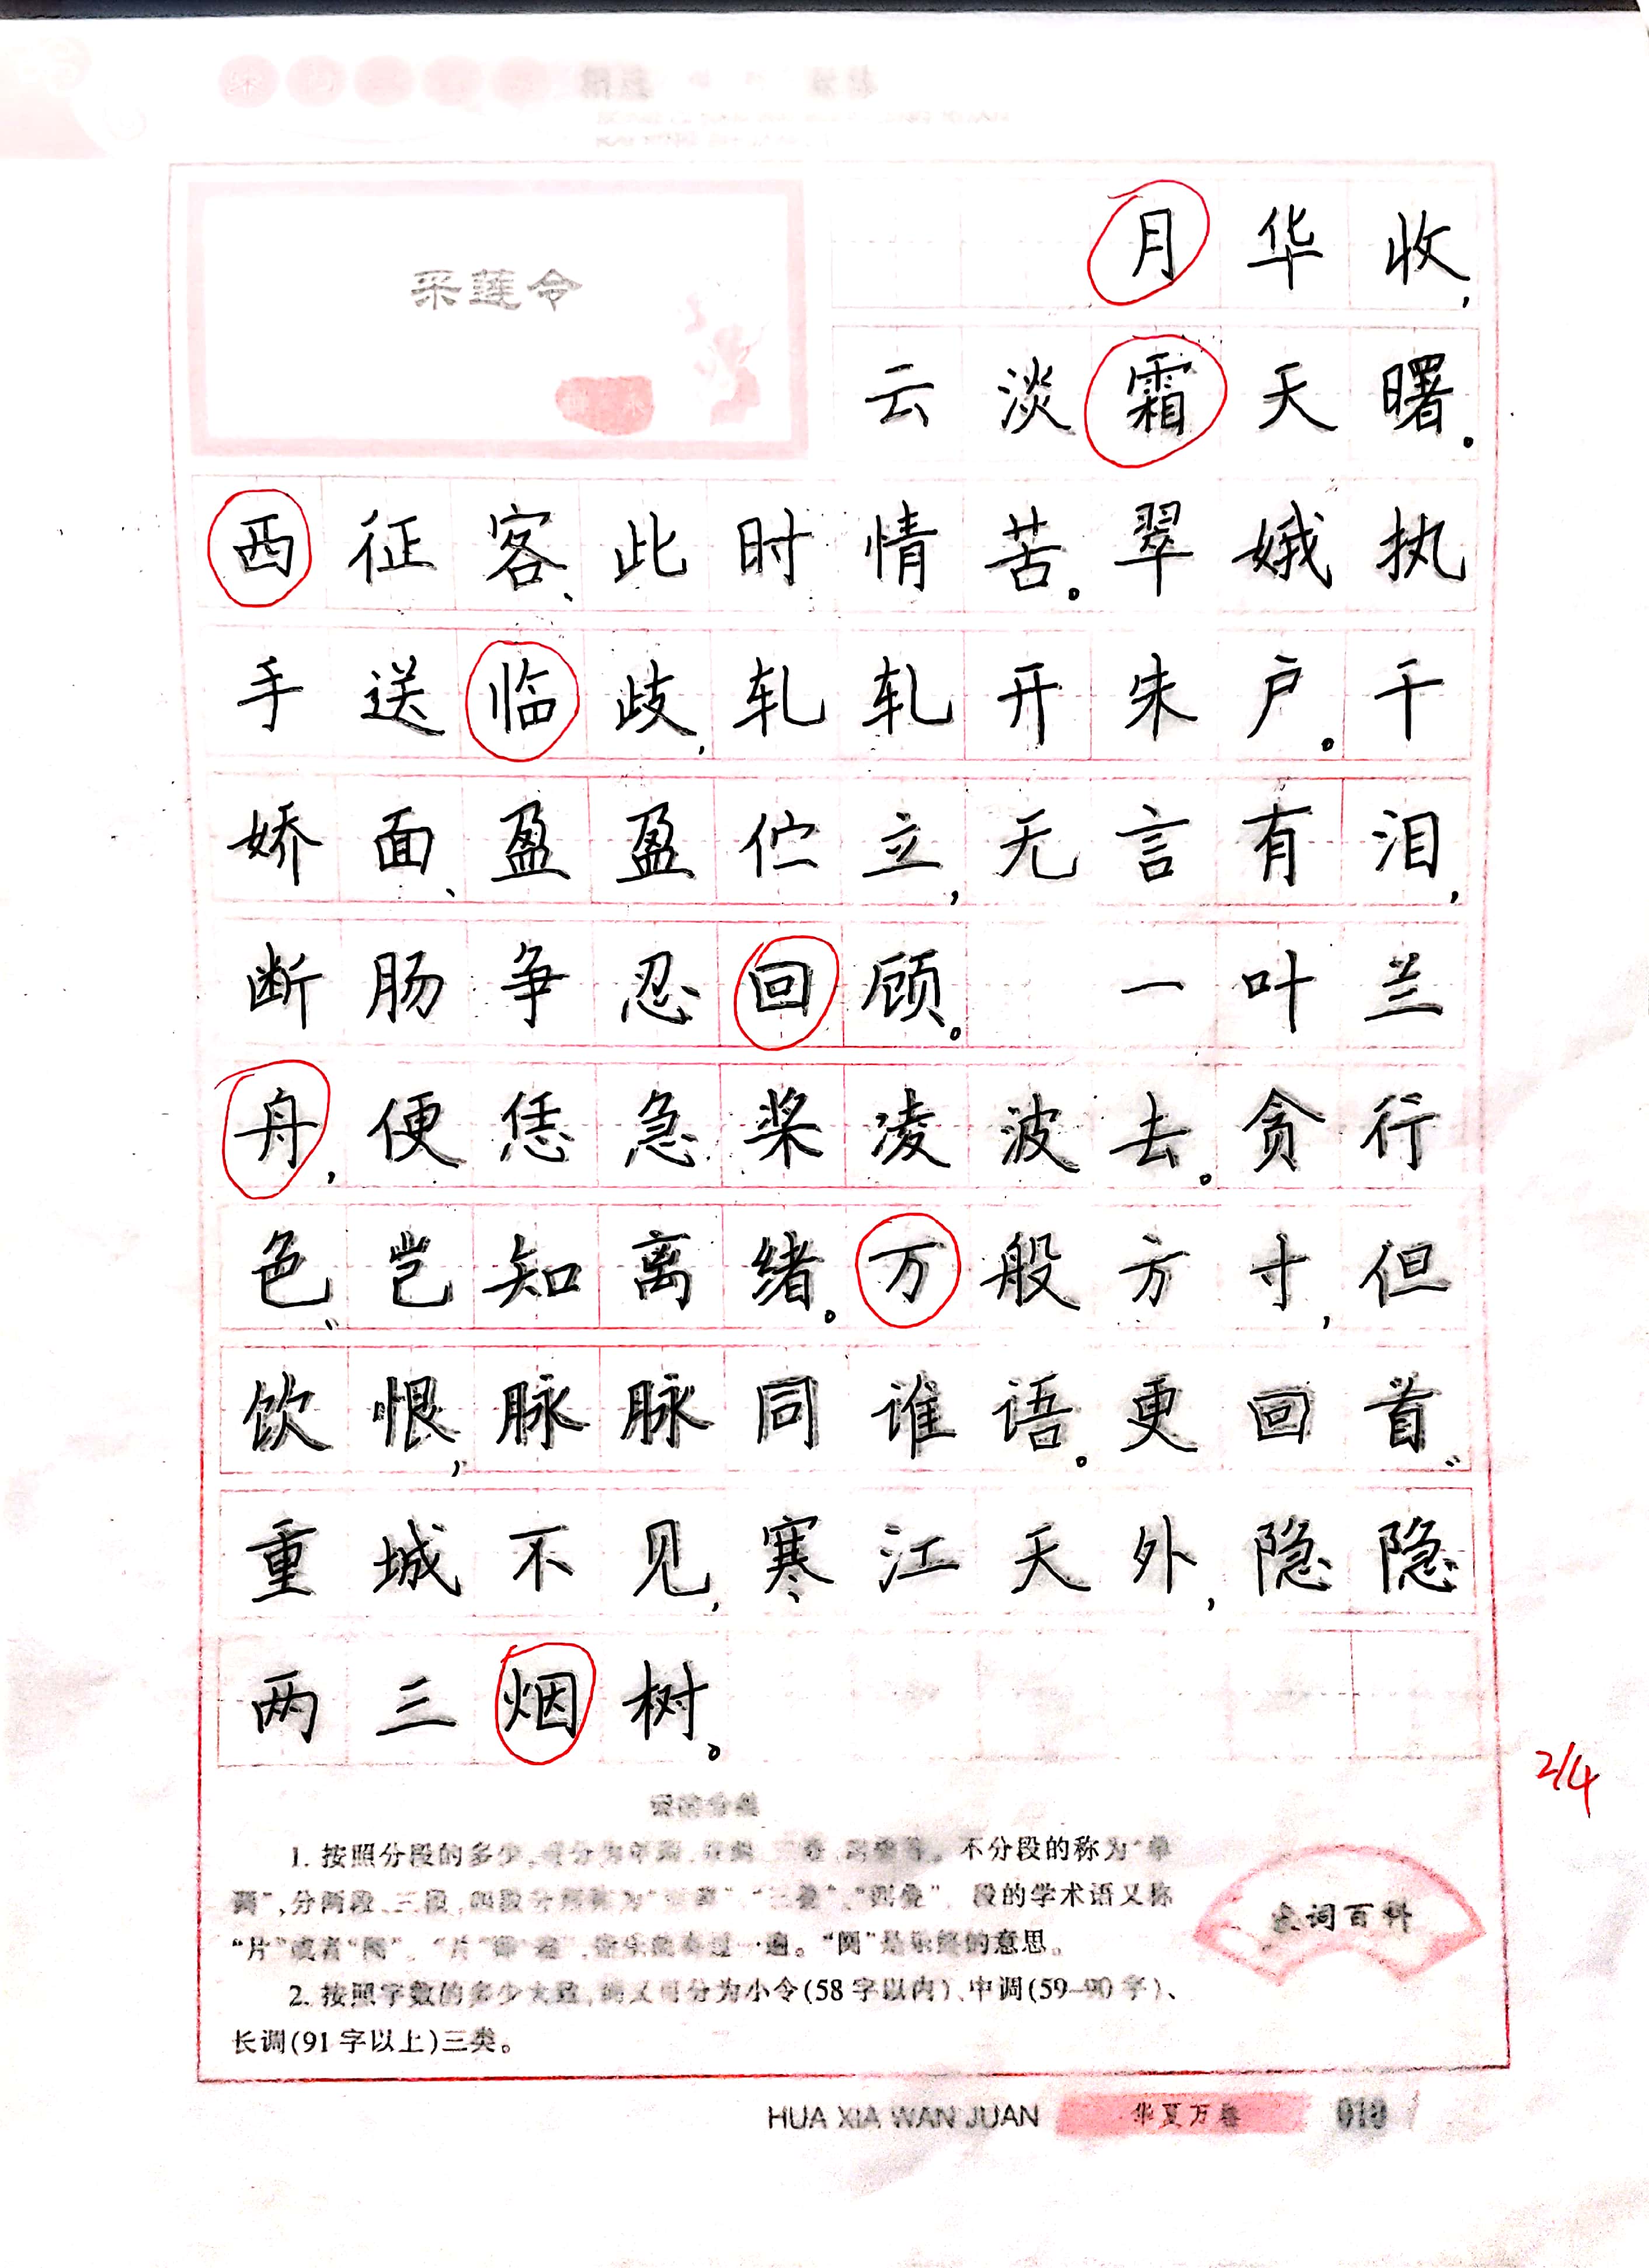 采莲令
月华收,
云淡霜天曙。
西征客、此时情苦。翠娥执
手送临歧,轧轧开朱户。千
娇面、盈盈伫立,无言有泪,
断肠争忍回顾。 一叶兰
舟,便恁急桨凌波去。贪行
色、岂知离绪。万般方寸,但
饮恨,脉脉同谁语。更回首、
重城不见,寒江天外,隐隐
两三烟树。
2/4
1. 按照分段的多少, 不分段的称为“单
调”,分两段、三段、四段 段的学术语又称
“片”或者“阕”。 “阕”是乐终的意思。
2. 按照字数的多少大致, 分为小令(58字以内)、中调(59-90字)、
长调(91字以上)三类。
词百科
HUA XIA WAN JUAN 华夏万卷 019